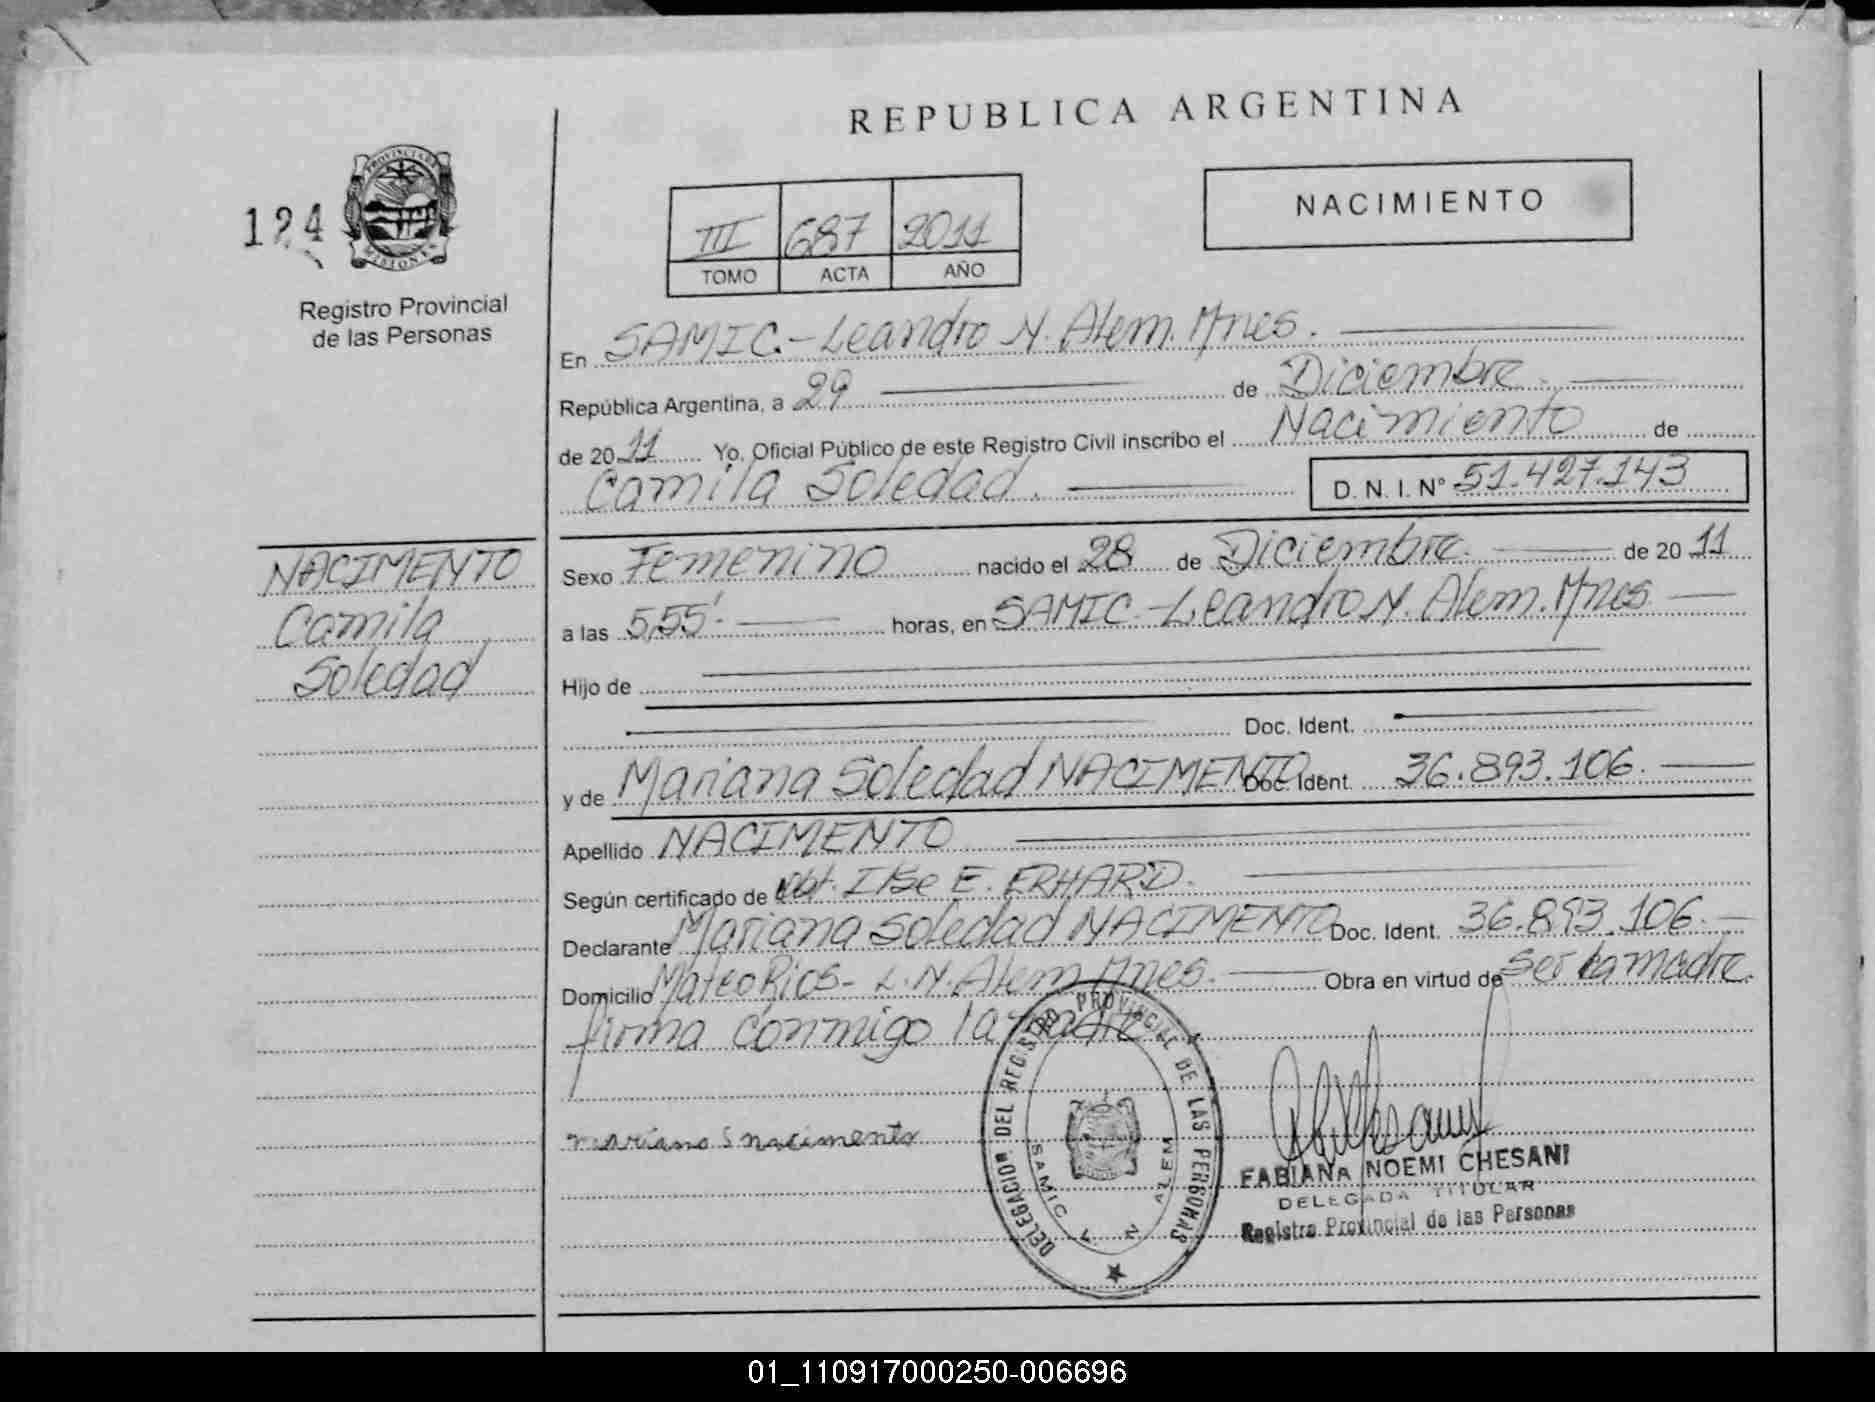 REPUBLICA ARGENTINA
NACIMIENTO
124
PROVINCIA DE MISIONES
Registro Provincial
de las Personas
III 687 2011
TOMO ACTA AÑO
En SAMIC.-Leandro N. Alem. Mnes.
República Argentina, a 29 de Diciembre
de 2011 Yo, Oficial Público de este Registro Civil inscribo el Nacimiento de
Camila Soledad. D. N. I. N° 51.427.143
NACIMENTO
Camila
Soledad
Sexo Femenino nacido el 28 de Diciembre. de 20 11
a las 5,55'. horas, en SAMIC-Leandro N. Alem. Mnes
Hijo de
Doc. Ident.
y de Mariana Soledad NACIMENTO Doc. Ident. 36.893.106.
Apellido NACIMENTO
Según certificado de Obt. Ilse E. ERHARD.
Declarante Mariana Soledad NACIMENTO Doc. Ident. 36.893.106.
Domicilio Mateo Rios- L.N. Alem Mnes. Obra en virtud de Ser la madre.
firma conmigo la madre
mariana S nacimento
DELEGACION DEL REGISTRO PROVINCIAL DE LAS PERSONAS
SAMIC L. N. ALEM
FABIANA NOEMI CHESANI
DELEGADA TITULAR
Registro Provincial de las Personas
01_110917000250-006696